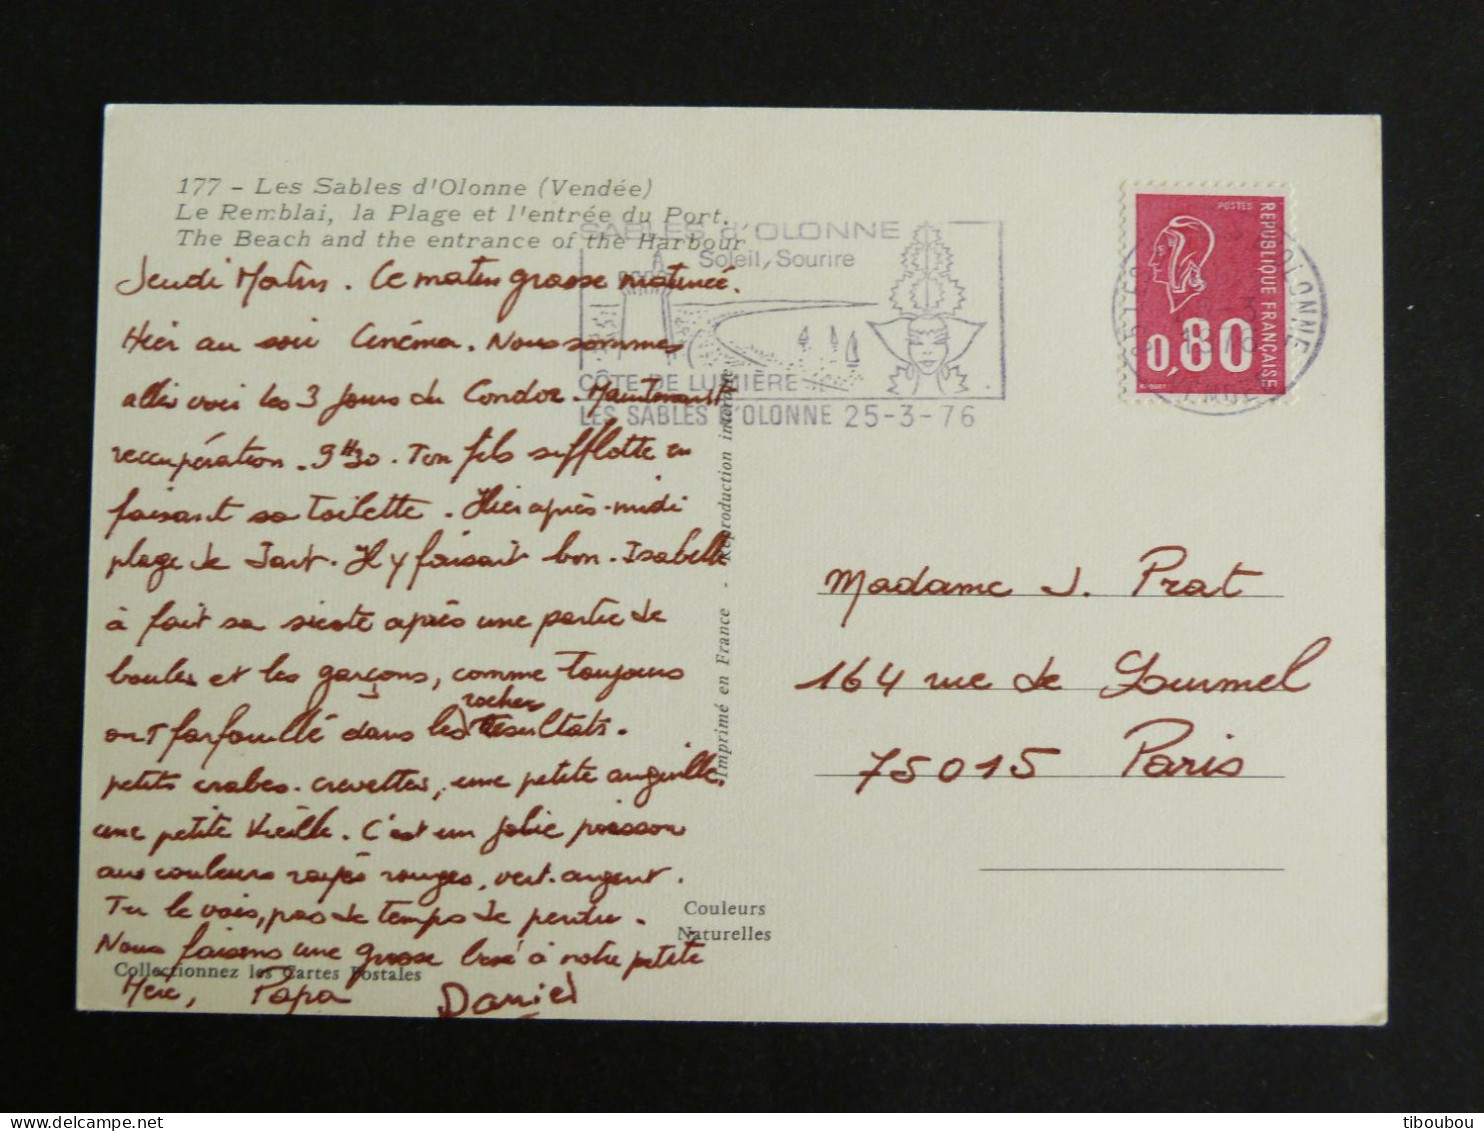 177 - Les Sables d'Olonne (Vendée)
Le Remblai, la Plage et l'entrée du Port.
The Beach and the entrance of the Harbour
SABLES d'OLONNE
Soleil, Sourire
CÔTE DE LUMIÈRE
LES SABLES D'OLONNE 25-3-76
POSTES
REPUBLIQUE FRANÇAISE
0,80
Jeudi Matin. Ce matin grasse matinée.
Hier au soir Cinéma. Nous sommes
allés voir les 3 jours du Condor. Maintenant
reccupération. 9H30. Ton fils sifflotte en
faisant sa toilette. Hier après-midi
plage de Jart. Il y faisait bon. Isabelle
à fait sa sieste après une partie de
boules et les garçons, comme toujours
rocher
ont farfouillé dans les résultats.
petits crabes. crevettes, une petite anguille,
une petite Vieille. C'est un jolie poisson
aux couleurs rayés rouges, vert. argent.
Tu le vois, pas de temps de perdu.
Nous faisons une grosse bise à notre petite
Mère, Papa Daniel
Collectionnez les Cartes Postales
Couleurs
Naturelles
Imprimé en France - Reproduction interdite
Madame J. Prat
164 rue de Lourmel
75015 Paris
tiboubou